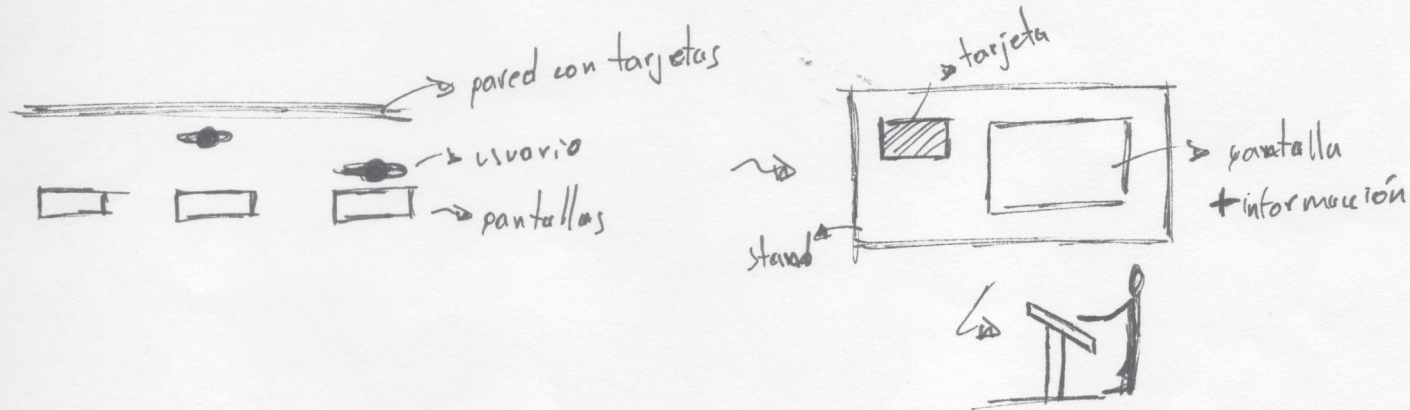 pared con tarjetas
usuario
pantallas
tarjeta
pantalla
+ información
stand